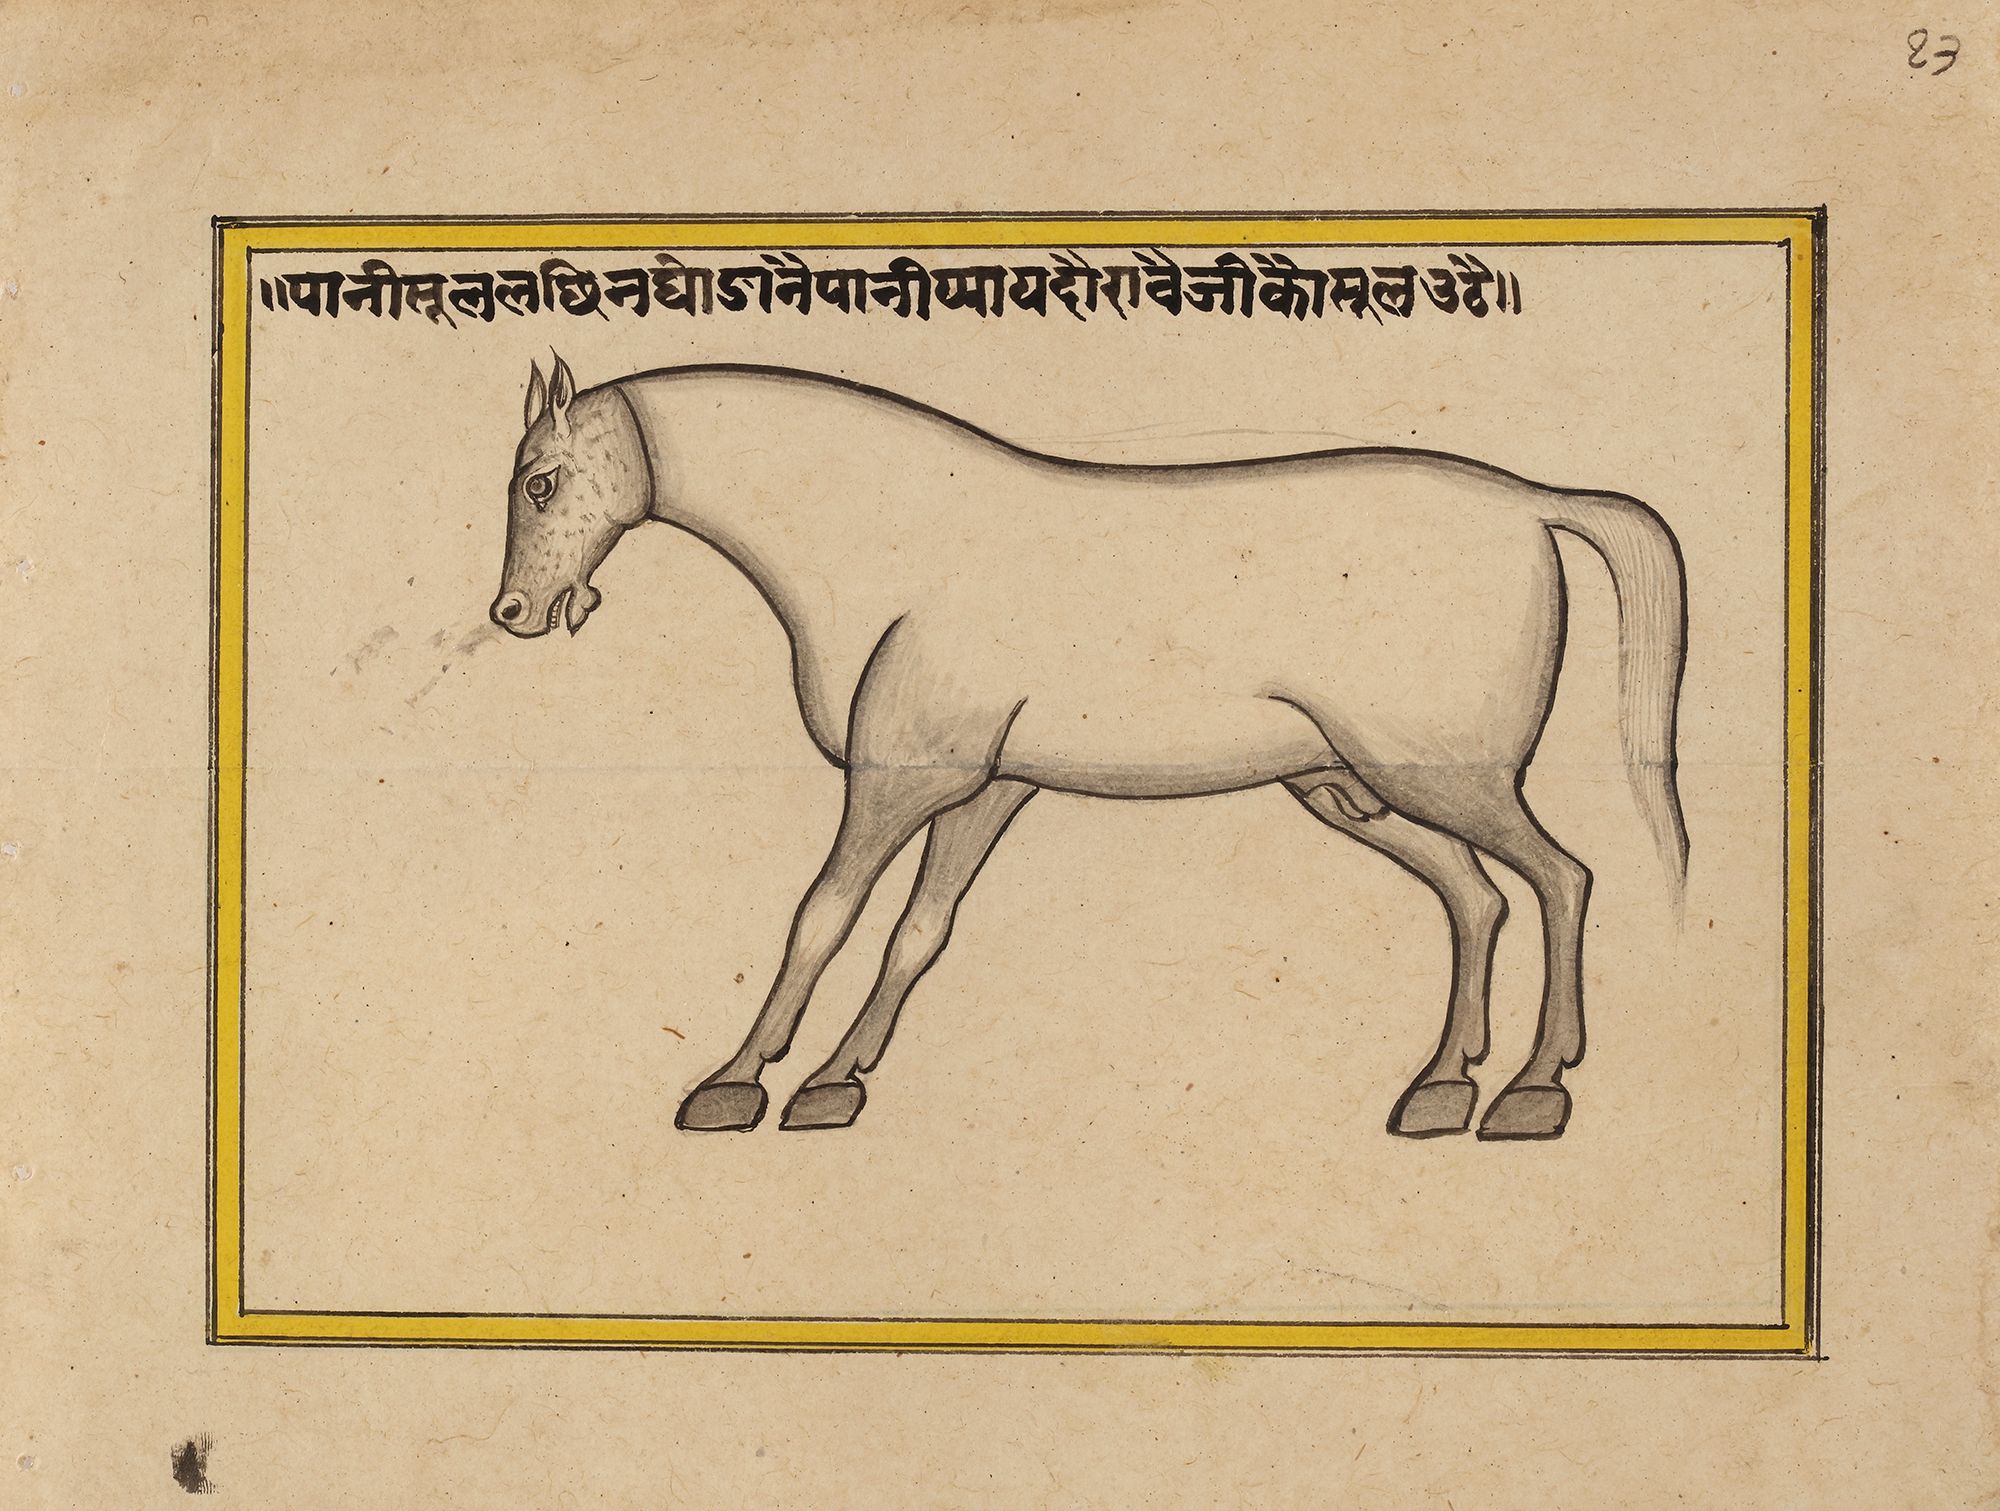 २३
॥पानीसूललछिनघोडानैपानीप्यायदौरावैजीकौसूलउठै॥